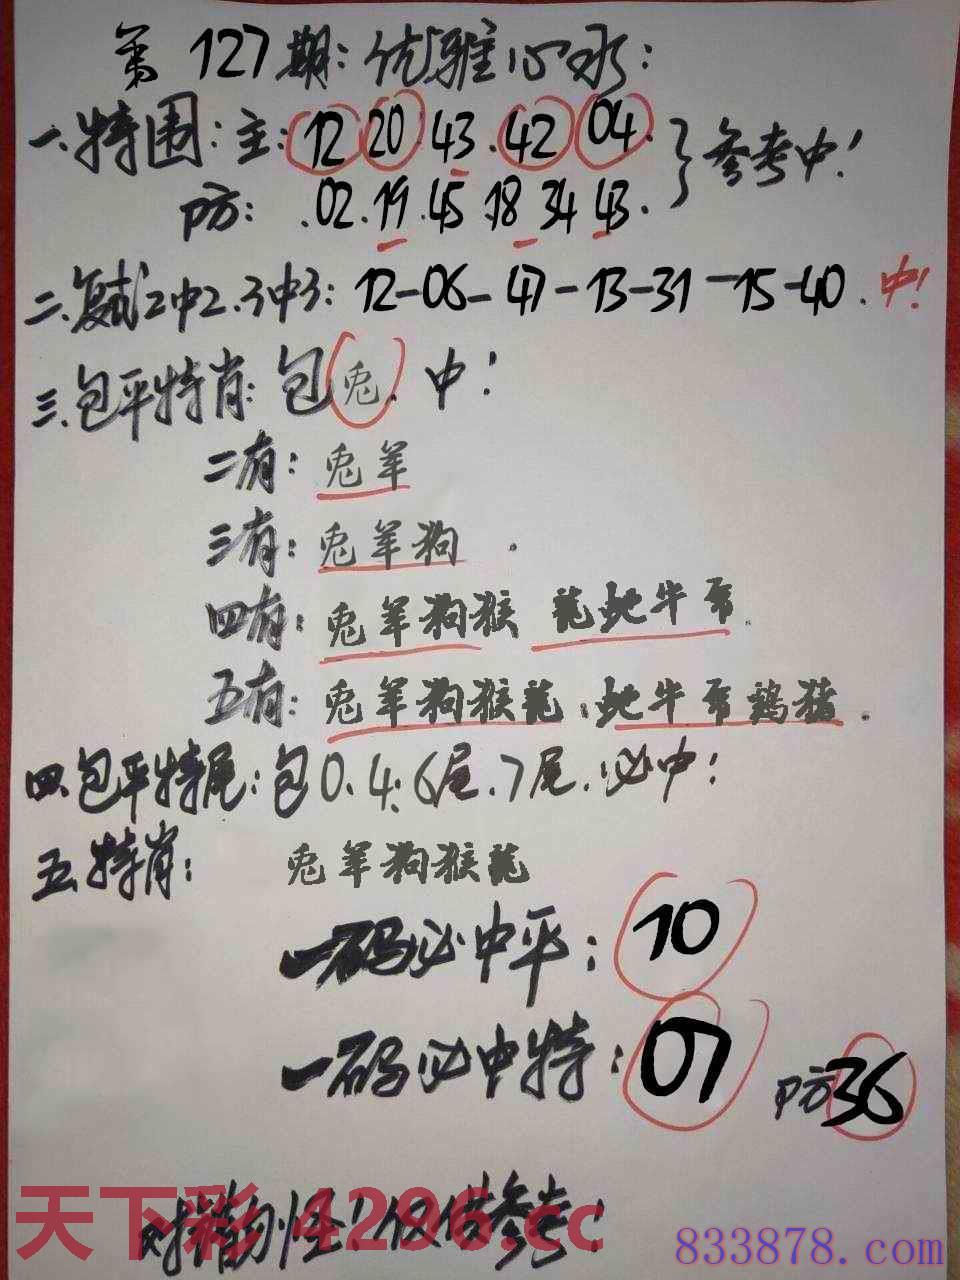 第127期:优雅心水:
一、特围:主:12 20.43.42 04.
防: .02.19.45.18 34 43. }参考中!
二、复试2中2.3中3: 12-06-47-13-31-15-40.中!
三、包平特肖:包兔.中!
二有:兔羊
三有:兔羊狗.
四有:兔羊狗猴 龍蛇牛马.
五有:兔羊狗猴龍.蛇牛马鸡猪.
四.包平特尾:包0.4.6尾.7尾.必中!
五、特肖: 兔羊狗猴龍
一码必中平:10
一码必中特:07 防36
天下彩4296.cc
勿怪!仅供参考!
833878.com